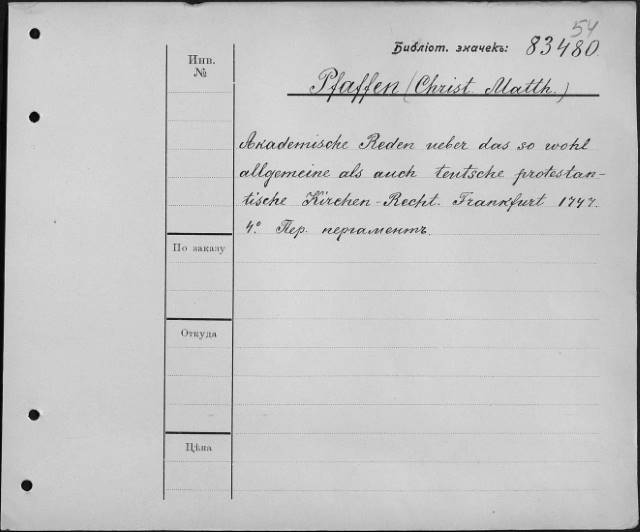 54
Библіот. значекъ: 83480.
Инв.
№
Pfaffen (Christ. Matth.)
Akademische Reden ueber das so wohl
allgemeine als auch teutsche protestan-
tische Kirchen-Recht. Frankfurt 1747.
4° Пер. пергаментъ.
По заказу
Откуда
Цѣна